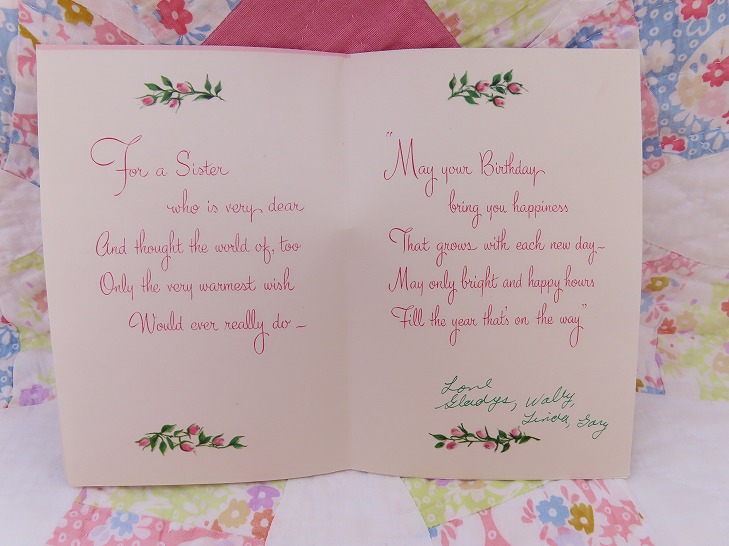 For a Sister
who is very dear
And thought the world of, too
Only the very warmest wish
Would ever really do —
"May your Birthday
bring you happiness
That grows with each new day—
May only bright and happy hours
Fill the year that's on the way"
Love
Gladys, Wally,
Linda, Gary